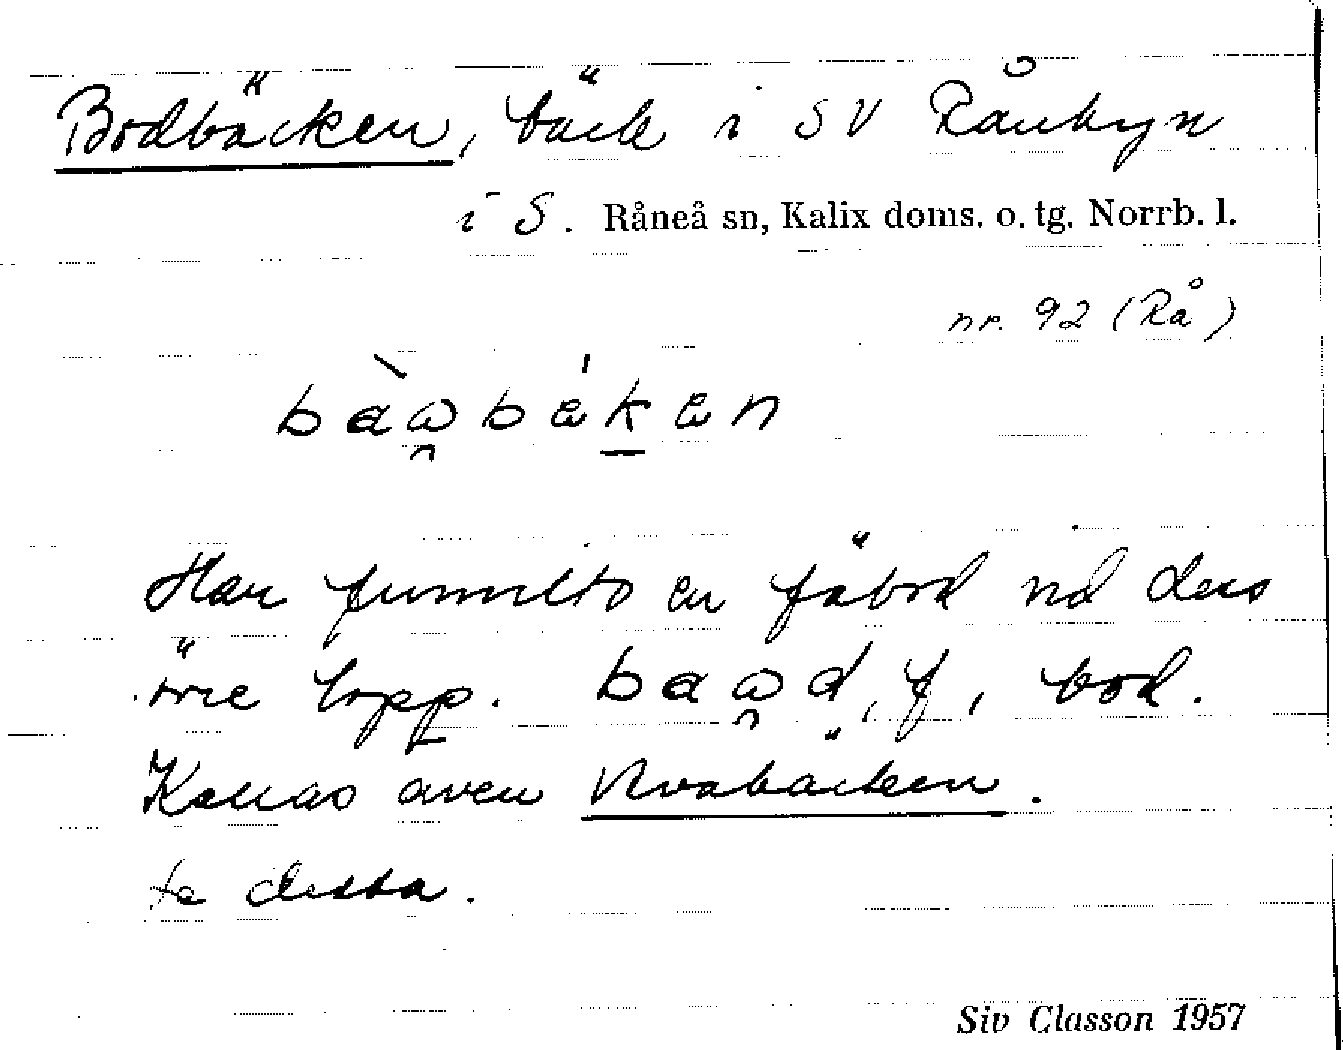 Bodbäcken, bäck i SV Rånbyn
i S. Råneå sn, Kalix doms. o. tg. Norrb. l.
nr. 92 (Rå)
Har funnits en fäbod vid dess
övre lopp. bod.
Kallas även
se dessa.
Siv Classon 1957